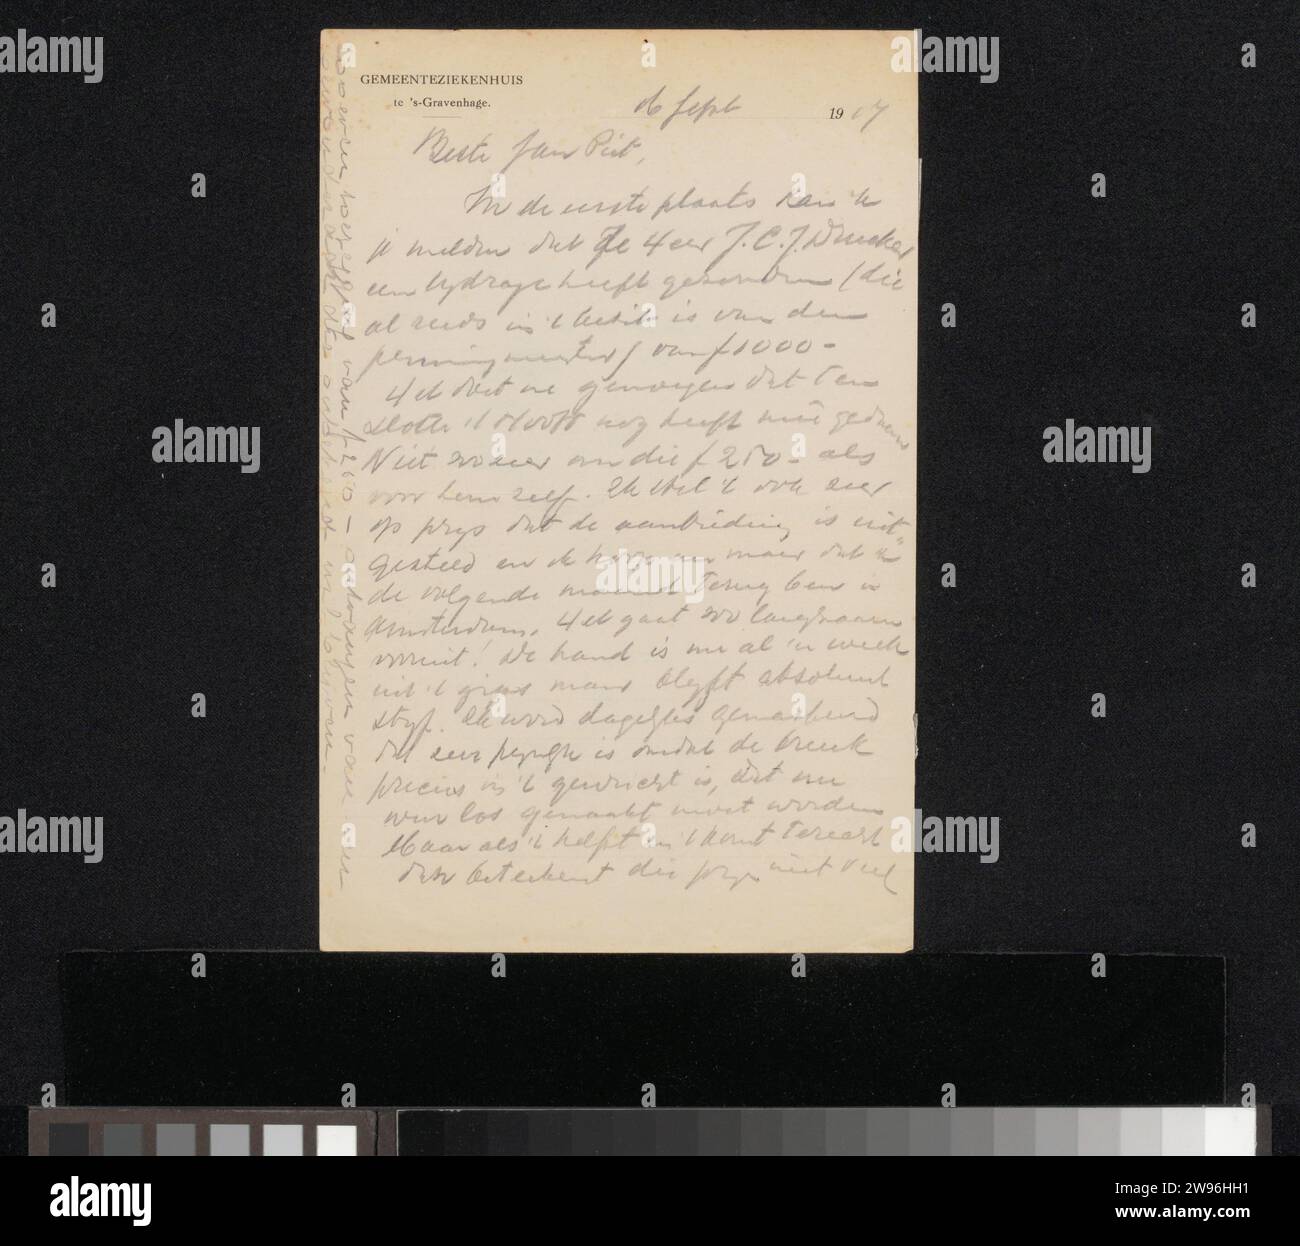 GEMEENTEZIEKENHUIS
te 's-Gravenhage.
Sept 1917
Beste Jan Piet,
In de eerste plaats kan 'k
je melden dat De Heer J.C.J. Drucker
een bydrage heeft gezonden (die
al reeds in 't bezit is van den
penningmeester) van f 1000-
Het doet me genoegen dat ten
slotte 't Hooft nog heeft
Niet zozeer om die f 250- als
voor hem zelf. Ik stel 't ook zeer
op prys dat de aanbieding is uit-
gesteld en ik hoop nu maar dat 'k
de volgende maand terug ben in
Amsterdam. Het gaat zoo langzaam
vooruit! De hand is nu al 'n week
uit 't gips maar blyft absoluut
styf. Ik word dagelyks gemasseerd
dat zeer pynlyk is omdat de breuk
precies in 't gewricht is, dat nu
weer los gemaakt moet worden
Maar als 't helpt en 't komt terecht
dan beteekent die pyn niet veel
van f 250 -
alamy
Image ID: 2W96HH1
www.alamy.com